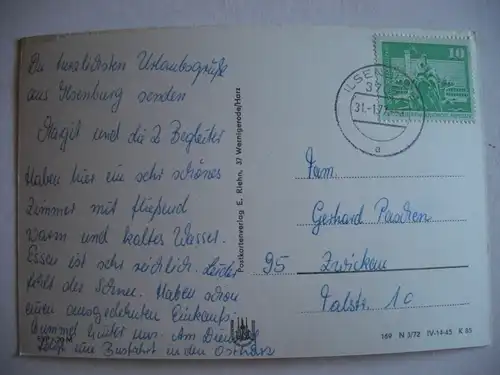 Die herzlichsten Urlaubsgrüße
aus Ilsenburg senden
Margit und die 2 Begleiter
Haben hier ein sehr schönes
Zimmer mit fließend
warm und kaltes Wasser.
Essen ist sehr reichlich. Leider
fehlt der Schnee. Haben schon
einen ausgedehnten Einkaufs-
bummel hinter uns. Am Dienstag
steigt eine Busfahrt in den Ostharz
Postkartenverlag E. Riehn, 37 Wernigerode/Harz
10
ILSENB
37
31.-1.7
a
Fam.
Gerhard Paschen
95 Zwickau
Talstr. 10
169 N 3/72 IV-14-45 K 83